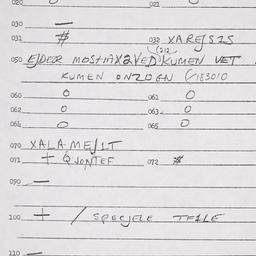 020 O 021 O
030 —
031 $ 032 XAREJSIS
(212
050 EJDER MOSTHAX2VED KUMEN VET
KUMEN ONZOGN (/183010
060 O 061 O
062 O 063 O
064 O 065 O
070 XALAMEJIT
071 + QJONTEF 072 $
090 —
100 + / SPECJELE TFILE
110 —